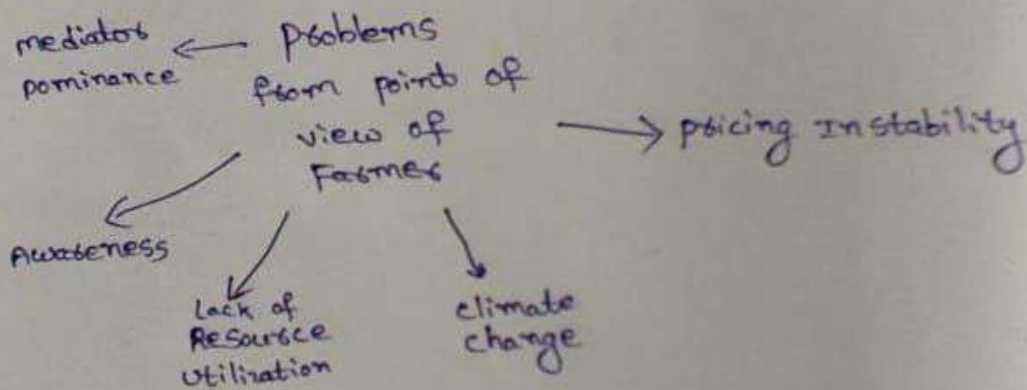 mediator
Dominance
Problems
from point of
view of
Farmer
pricing Instability
Awareness
Lack of
Resource
Utilization
climate
change